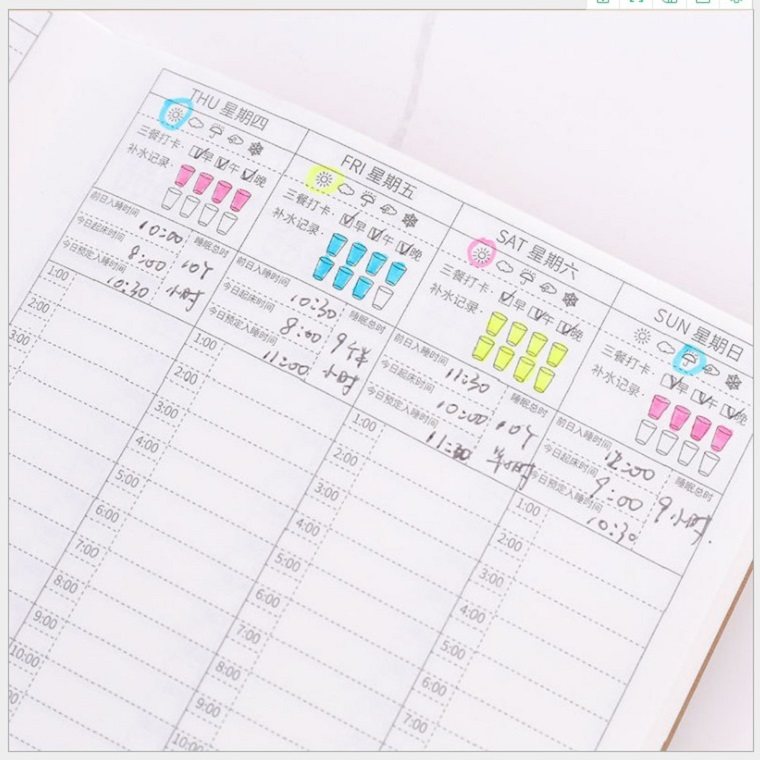 THU 星期四
三餐打卡 早 午 晚
补水记录
前日入睡时间 10:00 睡眠总时
今日起床时间 8:00 10个
今日预定入睡时间 10:30 小时
1:00
2:00
3:00
FRI 星期五
三餐打卡 早 午 晚
补水记录
前日入睡时间 10:30 睡眠总时
今日起床时间 8:00 9个半
今日预定入睡时间 11:00 小时
1:00
2:00
3:00
4:00
5:00
6:00
7:00
8:00
9:00
10:00
SAT 星期六
三餐打卡 早 午 晚
补水记录
前日入睡时间 11:30 睡眠总时
今日起床时间 10:00 10个
今日预定入睡时间 11:30 半小时
1:00
2:00
3:00
4:00
5:00
6:00
7:00
8:00
9:00
10:00
SUN 星期日
三餐打卡 早 午 晚
补水记录
前日入睡时间 12:00 睡眠总时
今日起床时间 9:00 9小时.
今日预定入睡时间 10:30
1:00
2:00
3:00
4:00
5:00
6:00
7:00